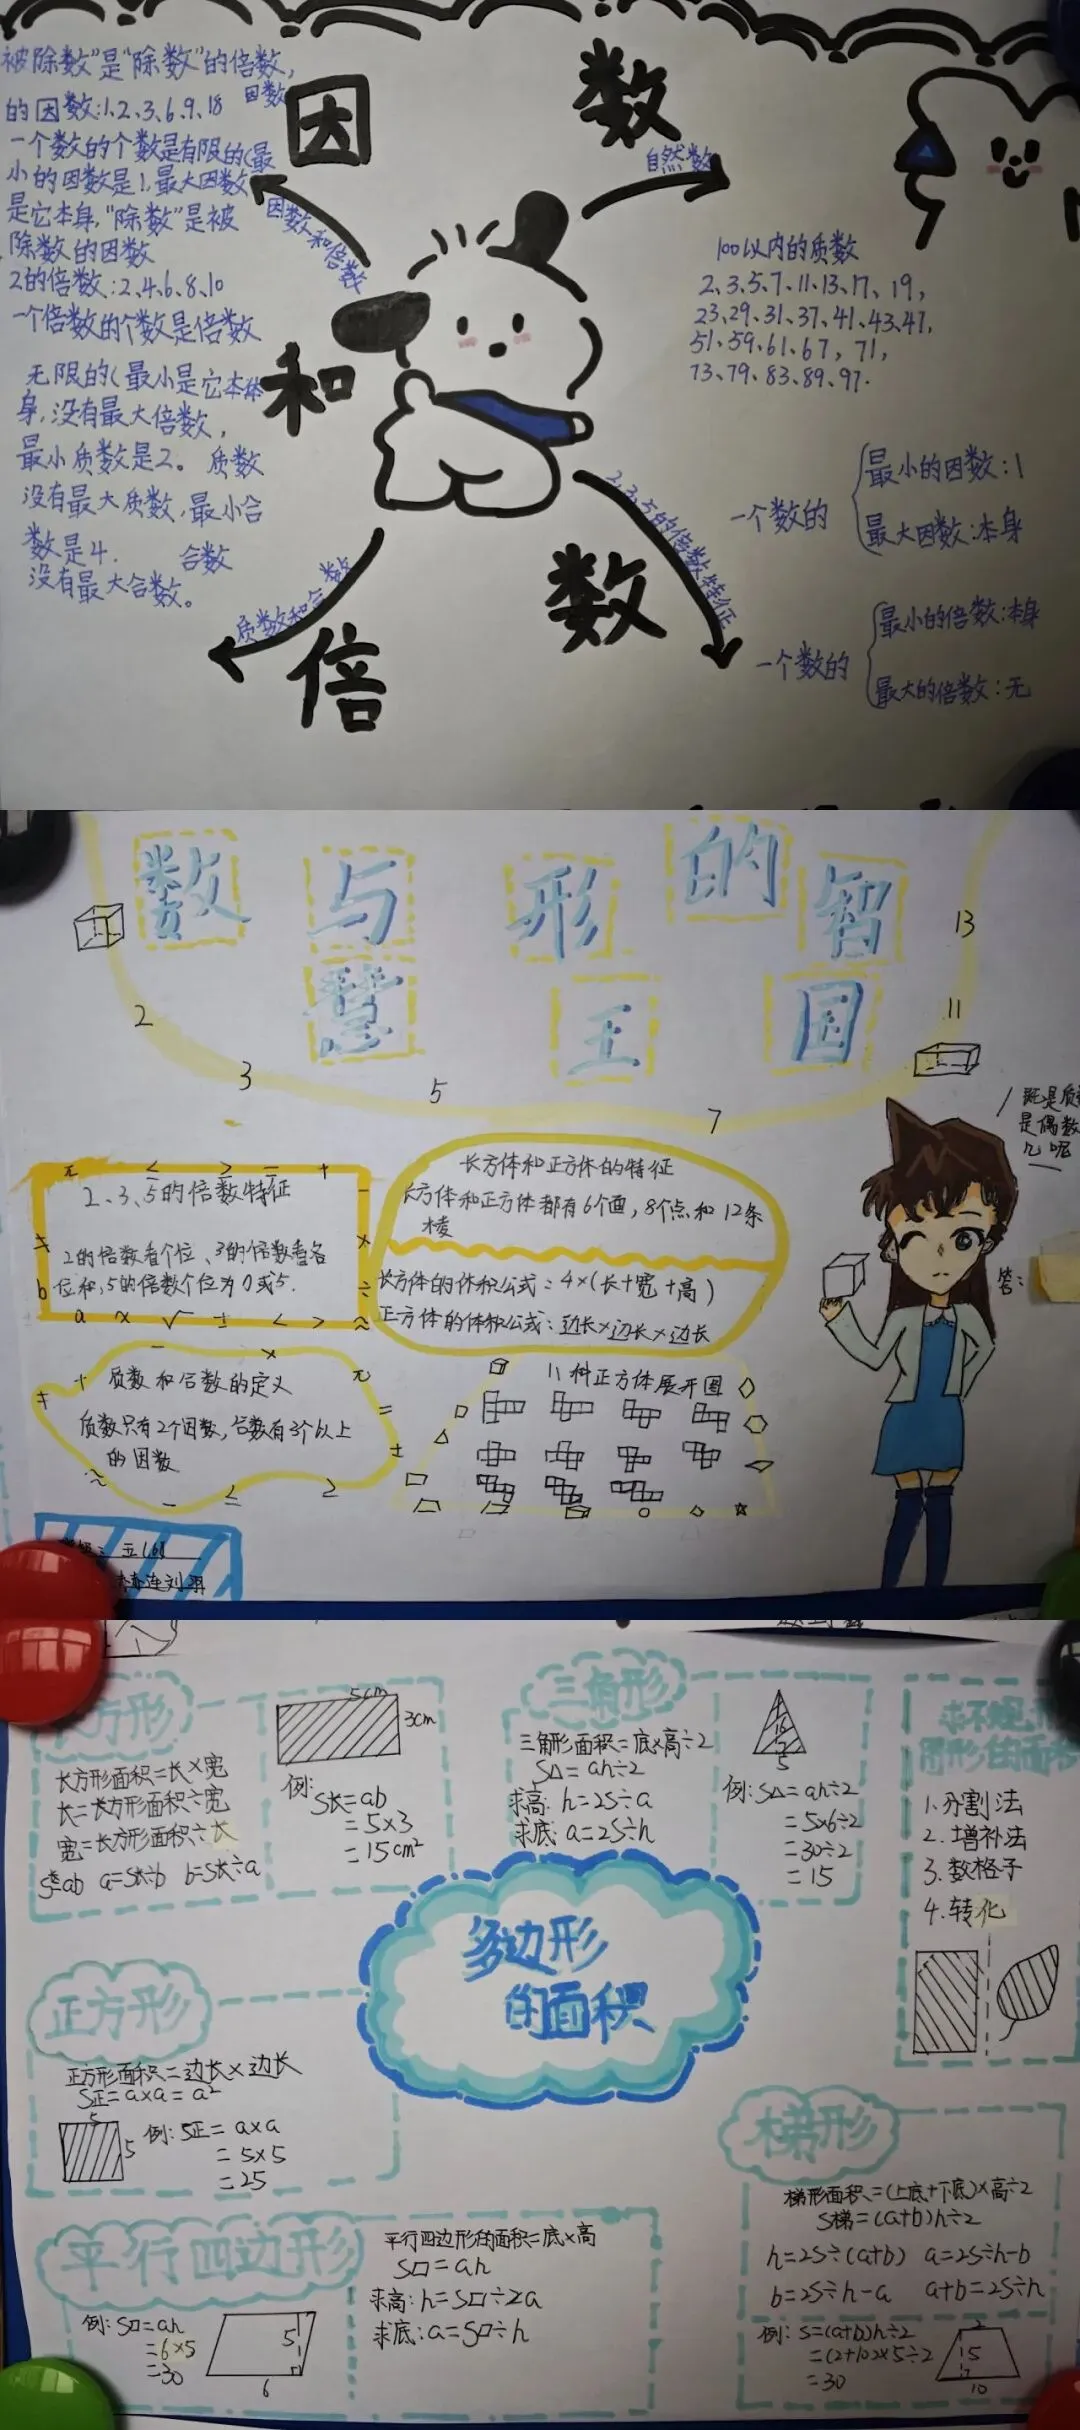 因数
和
倍数
被除数"是"除数"的倍数,
的因数:1、2、3、6、9、18 因数
一个数的个数是有限的(最
小的因数是1,最大因数
是它本身,"除数"是被
除数的因数
2的倍数:2、4、6、8、10
一个倍数的个数是倍数
无限的(最小是它本体
身,没有最大倍数,
最小质数是2。 质数
没有最大质数,最小合
数是4. 合数
没有最大合数。
因数和倍数
自然数
质数和合数
2、3、5的倍数特征
100以内的质数
2、3、5、7、11、13、17、19,
23、29、31、37、41、43、47,
51、59、61、67,71,
73、79、83、89、97.
一个数的
最小的因数:1
最大因数:本身
一个数的
最小的倍数:本身
最大的倍数:无
数与形的智
慧王国
2
3
5
7
11
13
2、3、5的倍数特征
2的倍数看个位、3的倍数看各
位和,5的倍数个位为0或5.
长方体和正方体的特征
长方体和正方体都有6个面,8个点和12条
棱
长方体的体积公式:4×(长+宽+高)
正方体的体积公式:边长×边长×边长
质数和合数的定义
质数只有2个因数,合数有3个以上
的因数
11种正方体展开图
既是质
是偶数
几呢
答:
多边形
的面积
方形
长方形面积=长×宽
长=长方形面积÷宽
宽=长方形面积÷长
S长=ab a=S长÷b b=S长÷a
5cm
3cm
例:
S长=ab
=5×3
=15cm²
三角形
三角形面积=底×高÷2
S△=ah÷2
求高:h=2S÷a
求底:a=2S÷h
5
例:S△=ah÷2
=5×6÷2
=30÷2
=15
1.分割法
2.增补法
3.数格子
4.转化
正方形
正方形面积=边长×边长
S正=a×a=a²
5
5
例:S正=a×a
=5×5
=25
平行四边形
例:S▱=ah
=6×5
=30
5
6
平行四边形的面积=底×高
S▱=ah
求高:h=S▱÷2a
求底:a=S▱÷h
梯形
梯形面积=(上底+下底)×高÷2
S梯=(a+b)h÷2
h=2S÷(a+b) a=2S÷h-b
b=2S÷h-a a+b=2S÷h
例:S=(a+b)h÷2
=(2+10)×5÷2
=30
2
5
10